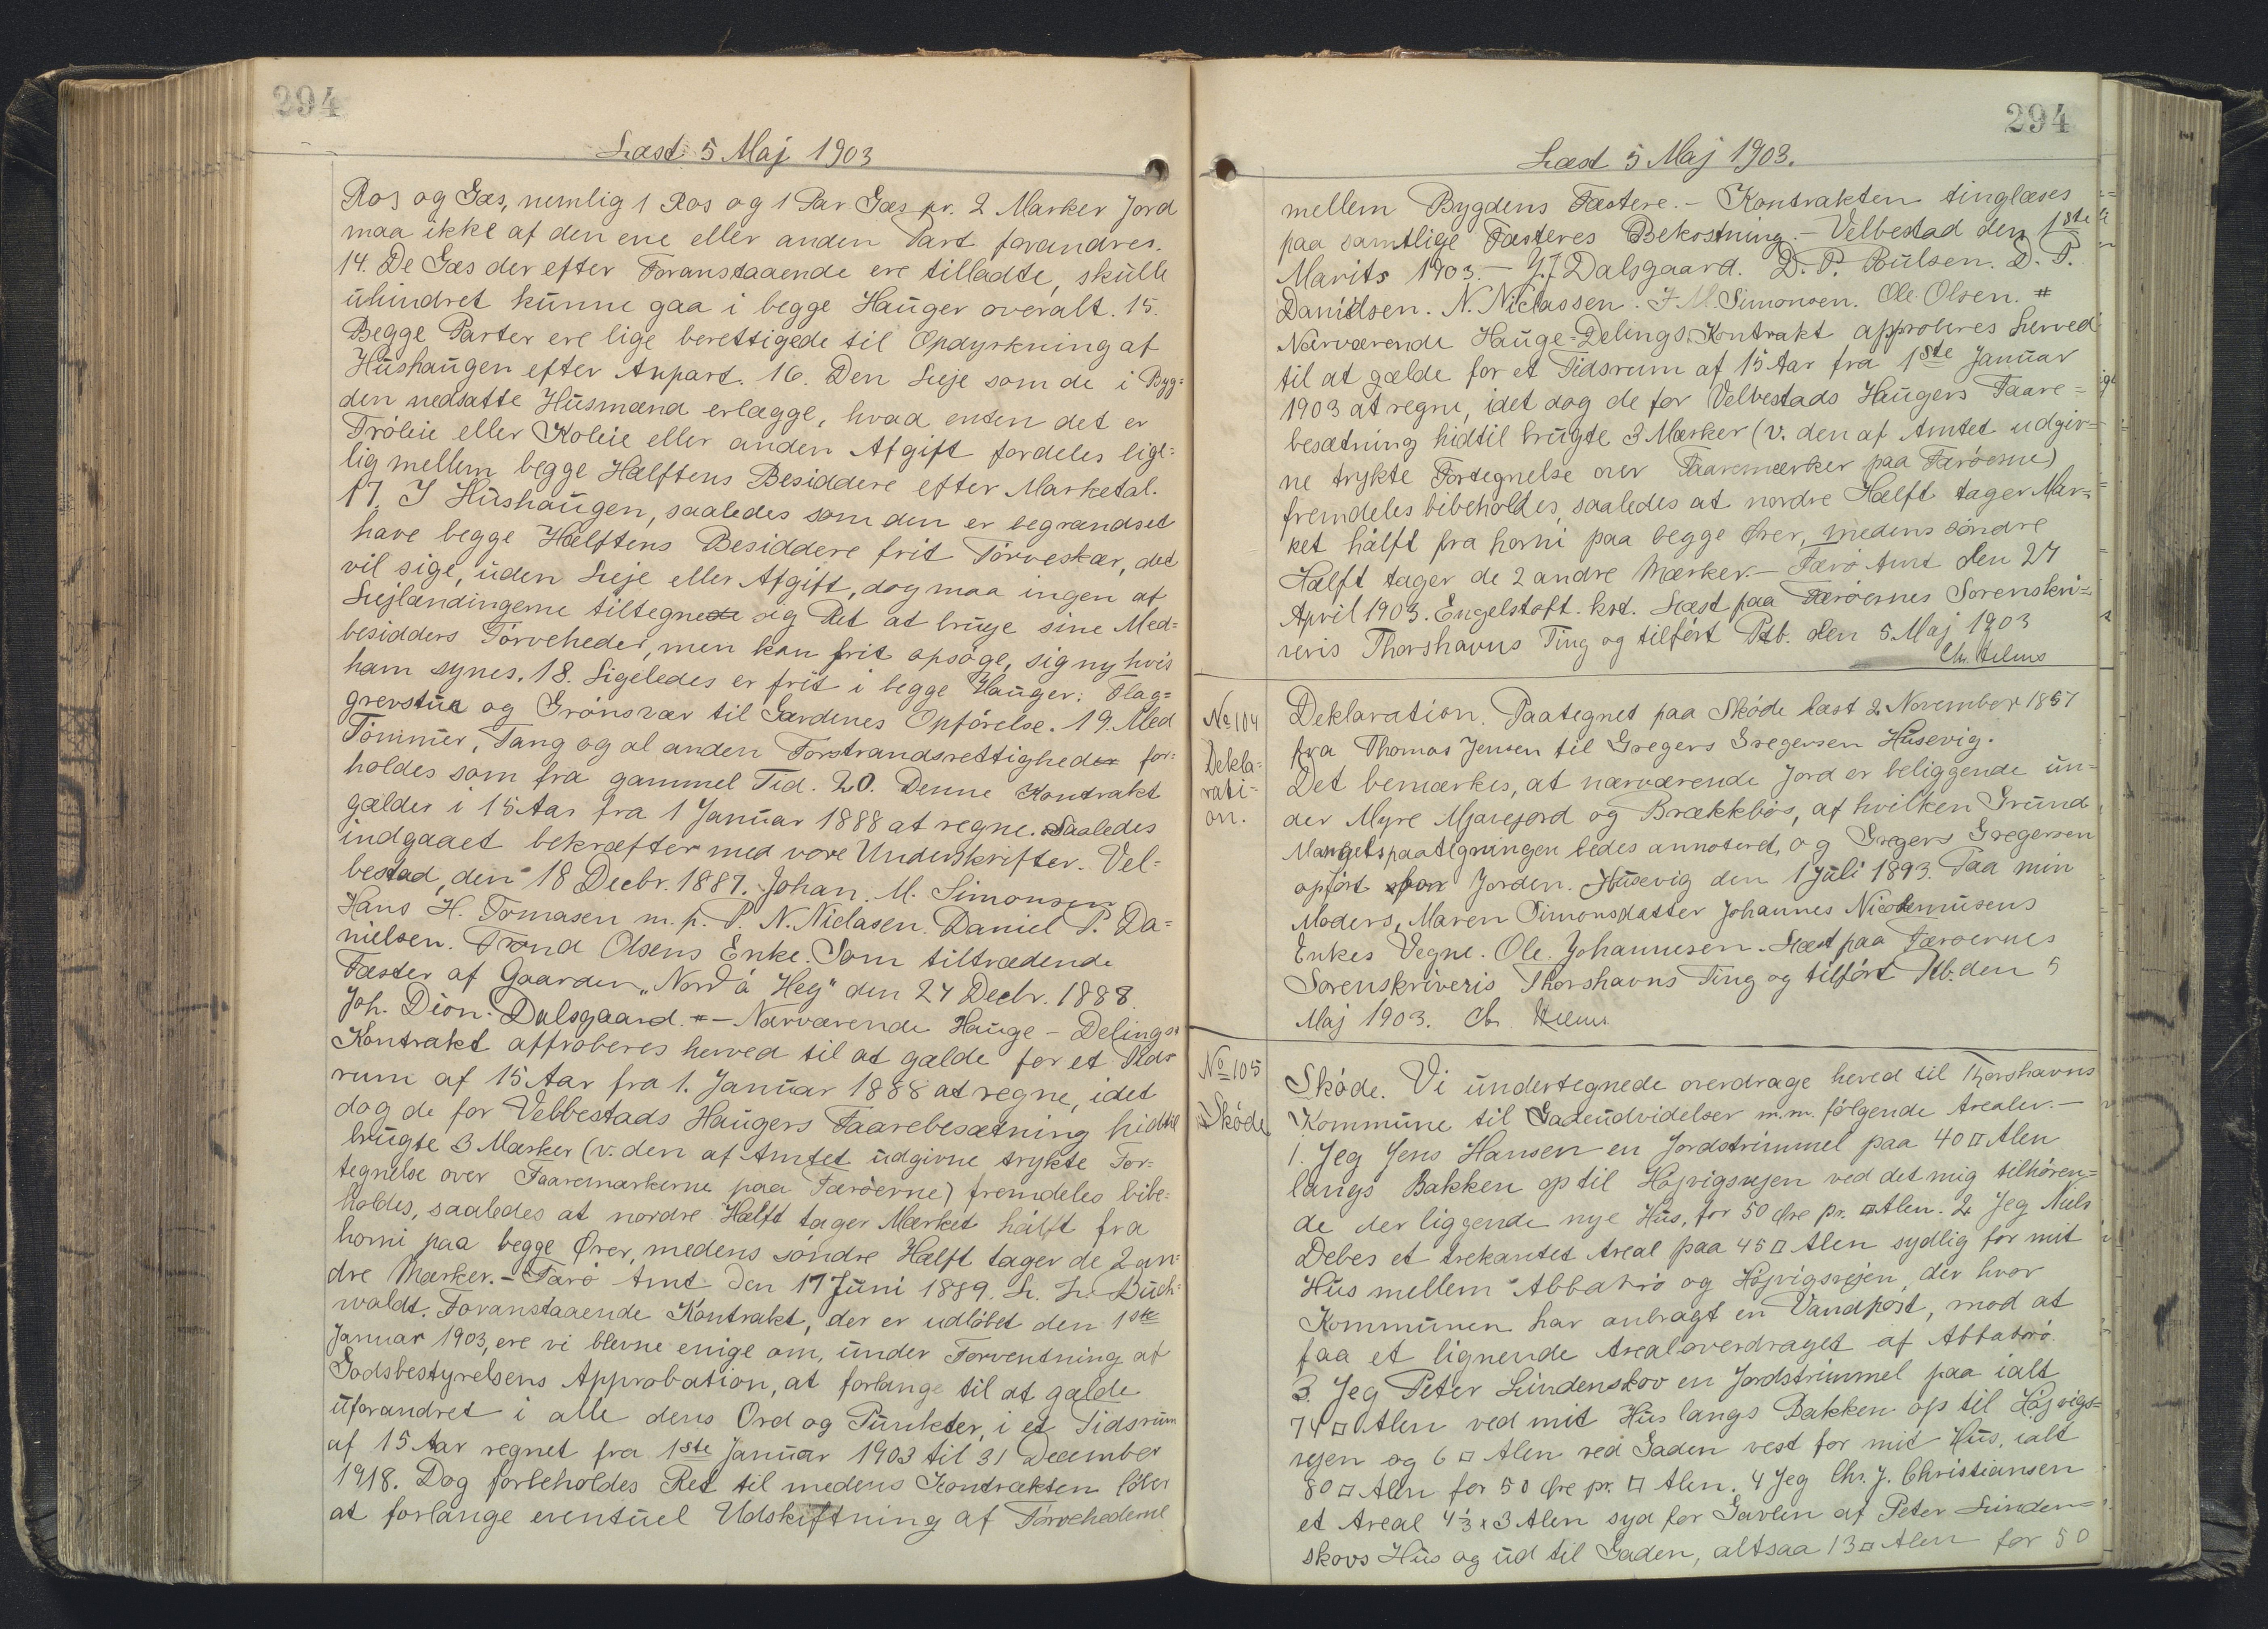 294
Læst 5 Maj 1903
Ros og Gæs, nemlig 1 Ros og 1 Par Gæs pr. 2 Marker Jord
maa ikke af den ene eller anden Part forandres.
14. De Gæs der efter Foranstaaende ere tilladte, skulle
uhindret kunne gaa i begge Hauger overalt. 15.
Begge Parter ere lige berettigede til Opdyrkning af
Hushaugen efter Anpart. 16. Den Leje som de i Byg=
den nedsatte Husmænd erlægge, hvad enten det er
Tröleie eller Koleie eller anden Afgift fordeles lige=
lig mellem begge Hælftens Besiddere efter Marketal.
17. I Hushaugen, saaledes som den er begrændset
have begge Hælftens Besiddere frit Törveskær, det
vil sige, uden Leje eller Afgift, dog maa ingen af
Lejlændingerne tiltegnede sig Ret at bruge sine Med=
besidders Törveheder, men kan frit opsöge, sig ny hvis
ham synes. 18. Ligeledes er frit i begge Hauger: Flag=
grevstur og Grönsvær til Gærdenes Opförelse. 19. Med
Tömmer, Tang og al anden Forstrandsrettigheder for=
holdes som fra gammel Tid. 20. Denne Kontrakt
gælder i 15 Aar fra 1 Januar 1888 at regne. Saaledes
indgaaet bekræfter med vore Underskrifter. Vel=
bestad, den 18 Decbr. 1887. Johan. M. Simonsen
Hans H. Tomasen m. p. P. N. Niclasen. Daniel P. Da=
nielsen. Trond Olsens Enke. Som tiltrædende
Fæster af Gaarden „Nord á Heg" den 24 Decbr. 1888.
Joh. Dion. Dalsgaard. # — Nærværende Hauge-Delings=
Kontrakt approberes herved til at gælde for et Tids
rum af 15 Aar fra 1. Januar 1888 at regne, idet
dog de for Velbestads Haugers Faarebesætning hidtil
brugte 3 Mærker (v. den af Amtet udgivne trykte For=
tegnelse over Faaremærkerne paa Færöerne) fremdeles bibe=
holdes, saaledes at nordre Hælft tager Mærket hálft fra
horni paa begge Ører, medens söndre Hælft tager de 2 an=
dre Mærker. — Færö Amt den 17 Juni 1889. H. Chr. Buch=
waldt. Foranstaaende Kontrakt, der er udlöbet den 1ste
Januar 1903, ere vi blevne enige om, under Forventning af
Godsbestyrelsens Approbation, at forlange til at gælde
uforandret i alle dens Ord og Punkter, i et Tidsrum
af 15 Aar regnet fra 1ste Januar 1903 til 31 December
1918. Dog forbeholdes Ret til medens Kontrakten löber
at forlange eventuel Udskiftning af Törvehederne
294
Læst 5 Maj 1903.
mellem Bygdens Fæstere. — Kontrakten tinglæses
paa samtlige Fæsteres Bekostning. — Velbestad den 1ste
Marits 1903. — J. J. Dalsgaard. D. P. Poulsen. D. P.
Danielsen. N. Niclassen. J M. Simonsen. Ole Olsen. #
Nærværende Hauge-Delings Kontrakt approberes herved
til at gælde for et Tidsrum af 15 Aar fra 1ste Januar
1903 at regne, idet dog de for Velbestads Haugers Faare=
besætning hidtil brugte 3 Mærker (v. den af Amtet udgiv=
ne trykte Fortegnelse over Faaremærker paa Færöerne)
fremdeles bibeholdes, saaledes at nordre Hælft tager Mær=
ket hálft fra horni paa begge Ører, medens söndre
Hælft tager de 2 andre Mærker. — Færö Amt den 27
April 1903. Engelstoft. kst. Læst paa Færöernes Sorenskri=
veris Thorshavns Ting og tilfört Ptb. den 5 Maj 1903
Chr. Helms
No 104
Dekla=
rati=
on.
Deklaration. Paategnet paa Sköde læst 2 November 1857
fra Thomas Jensen til Gregers Gregersen Husevig.
Det bemærkes, at nærværende Jord er beliggende un=
der Myre Mjarejord og Brækkbös, af hvilken Grund
Mangelspaategningen bedes annoteret, og Gregers Gregersen
opfört for Jorden. Husevig den 1 Juli 1893. Paa min
Moders, Maren Simonsdatter Johannes Nicodemusens
Enkes Vegne. Ole Johannesen. Læst paa Færoernes
Sorenskriveris Thorshavns Ting og tilfört Ptb. den 5
Maj 1903. Chr. Helms
No 105
Sköde
Sköde. Vi undertegnede overdrage herved til Thorshavns
Kommune til Gadeudvidelser m.m. fölgende Arealer. —
1. Jeg Jens Hansen en Jordstrimmel paa 40 □ Alen
langs Bakken op til Højvigsvejen ved det mig tilhören=
de der liggende nye Hus, for 50 Øre pr. □ Alen. 2. Jeg Niels
Debes et trekantet Areal paa 45 □ Alen sydlig for mit
Hus mellem Abbatrö og Höjvigsvejen, der hvor
Kommunen har anbragt en Vandpost, mod at
faa et lignende Areal overdraget af Abbatrö.
3. Jeg Peter Lündenskov en Jordstrimmel paa ialt
74 □ Alen ved mit Hus langs Bakken op til Höjvigs=
vejen og 6 □ Alen ved Gaden vest for mit Hus, ialt
80 □ Alen for 50 Øre pr. □ Alen. 4 Jeg Chr. J. Christiansen
et Areal 4⅓ x 3 Alen syd for Gavlen af Peter Lünden=
skovs Hus og ud til Gaden, altsaa 13 □ Alen for 50